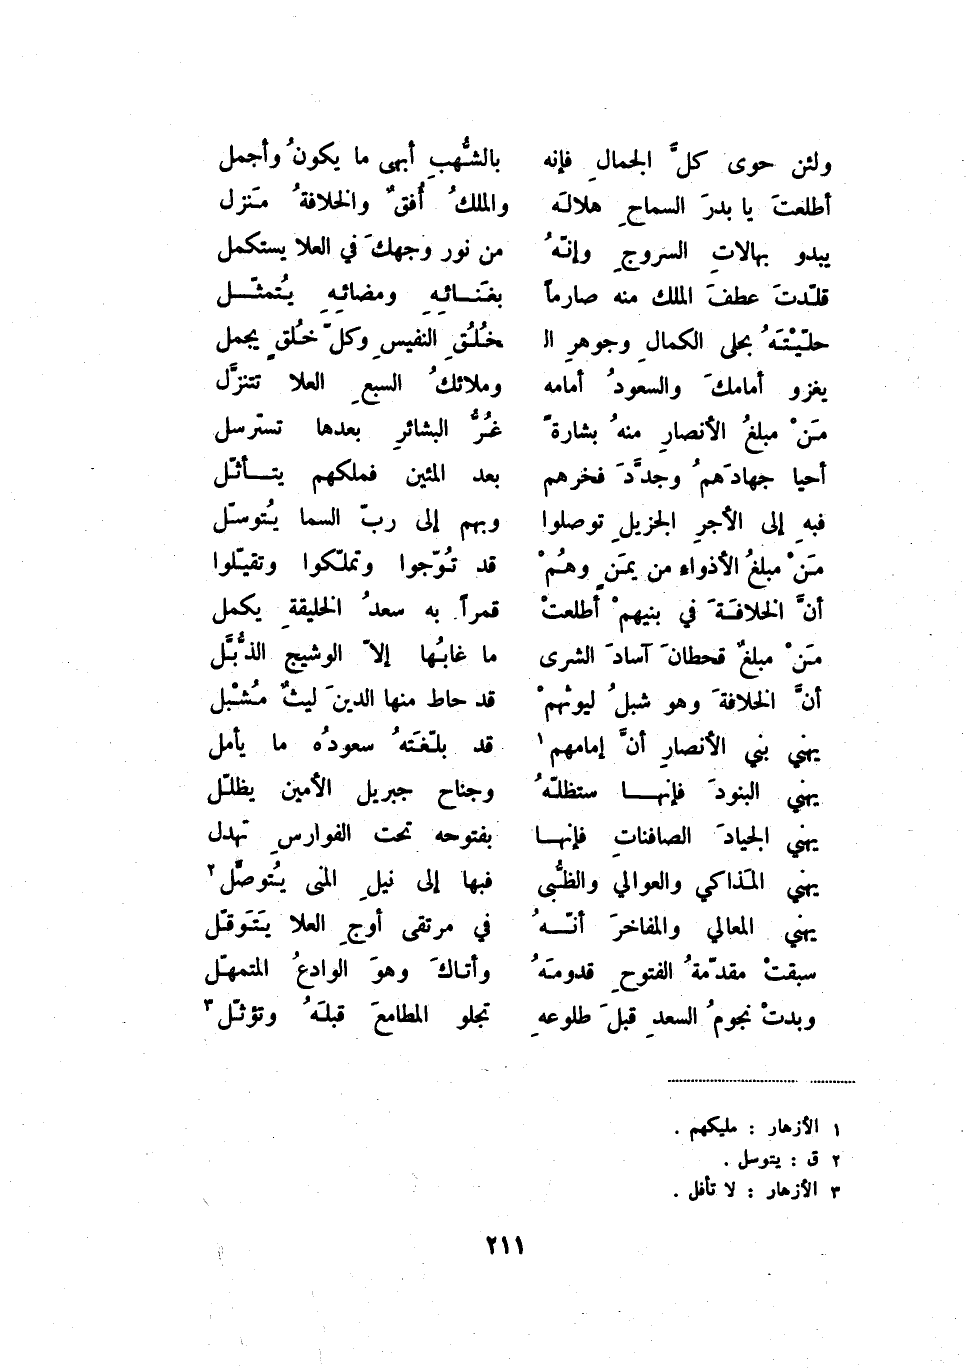 ولئن حوى كلَّ الجمالِ فإنه بالشُّهبِ أبهى ما يكونُ وأجمل
أطلعتَ يا بدرَ السماحِ هلالَه والملكُ أُفقٌ والخلافةُ مَنزل
يبدو بهالاتِ السروجِ وإنّهُ من نور وجهكَ في العلا يستكمل
قلّدتَ عطفَ الملك منه صارماً بغَنائِهِ ومضائِهِ يُتمثّل
حلّيْتَهُ بحلى الكمالِ وجوهرِ الـ خُلُقِ النفيسِ وكلّ خُلقٍ يجمل
يغزو أمامكَ والسعودُ أمامه وملائكُ السبعِ العلا تتنزَّل
مَنْ مبلغُ الأنصارِ منهُ بشارةً غُرُّ البشائرِ بعدها تسترسل
أحيا جهادَهمُ وجدَّدَ فخرهم بعد المئين فملكهم يتأثّل
فبهِ إلى الأجرِ الجزيلِ توصلوا وبهم إلى ربّ السما يُتوسّل
مَنْ مبلغُ الأذواء من يمَنٍ وهُمْ قد تُوّجوا وتملّكوا وتقيّلوا
أنَّ الخلافَةَ في بنيهمْ أطلعتْ قمراً به سعدُ الخليقةِ يكمل
مَنْ مبلغٌ قحطانَ آسادَ الشرى ما غابُها إلاّ الوشيج الذُّبَّل
أنَّ الخلافةَ وهو شبلُ ليوثهمْ قد حاط منها الدينَ ليثٌ مُشْبل
يهني بني الأنصارِ أنَّ إمامهم١ قد بلّغَتهُ سعودُه ما يأمل
يهني البنودَ فإنها ستظلّهُ وجناح جبريل الأمين يظلّل
يهني الجيادَ الصافناتِ فإنها بفتوحه تحت الفوارسِ تهدل
يهني المَذاكي والعوالي والظُّبى فبها إلى نيلِ المنى يُتوصَّل٢
يهني المعالي والمفاخرَ أنّهُ في مرتقى أوجِ العلا يَتَوقّل
سبقتْ مقدّمةُ الفتوحِ قدومَهُ وأتاكَ وهوَ الوادعُ المتمهّل
وبدتْ نجومُ السعدِ قبلَ طلوعهِ تجلو المطامعَ قبلَهُ وتؤثّل٣
١ الأزهار : مليكهم .
٢ ق : يتوسل .
٣ الأزهار : لا تأفل .
٢١١